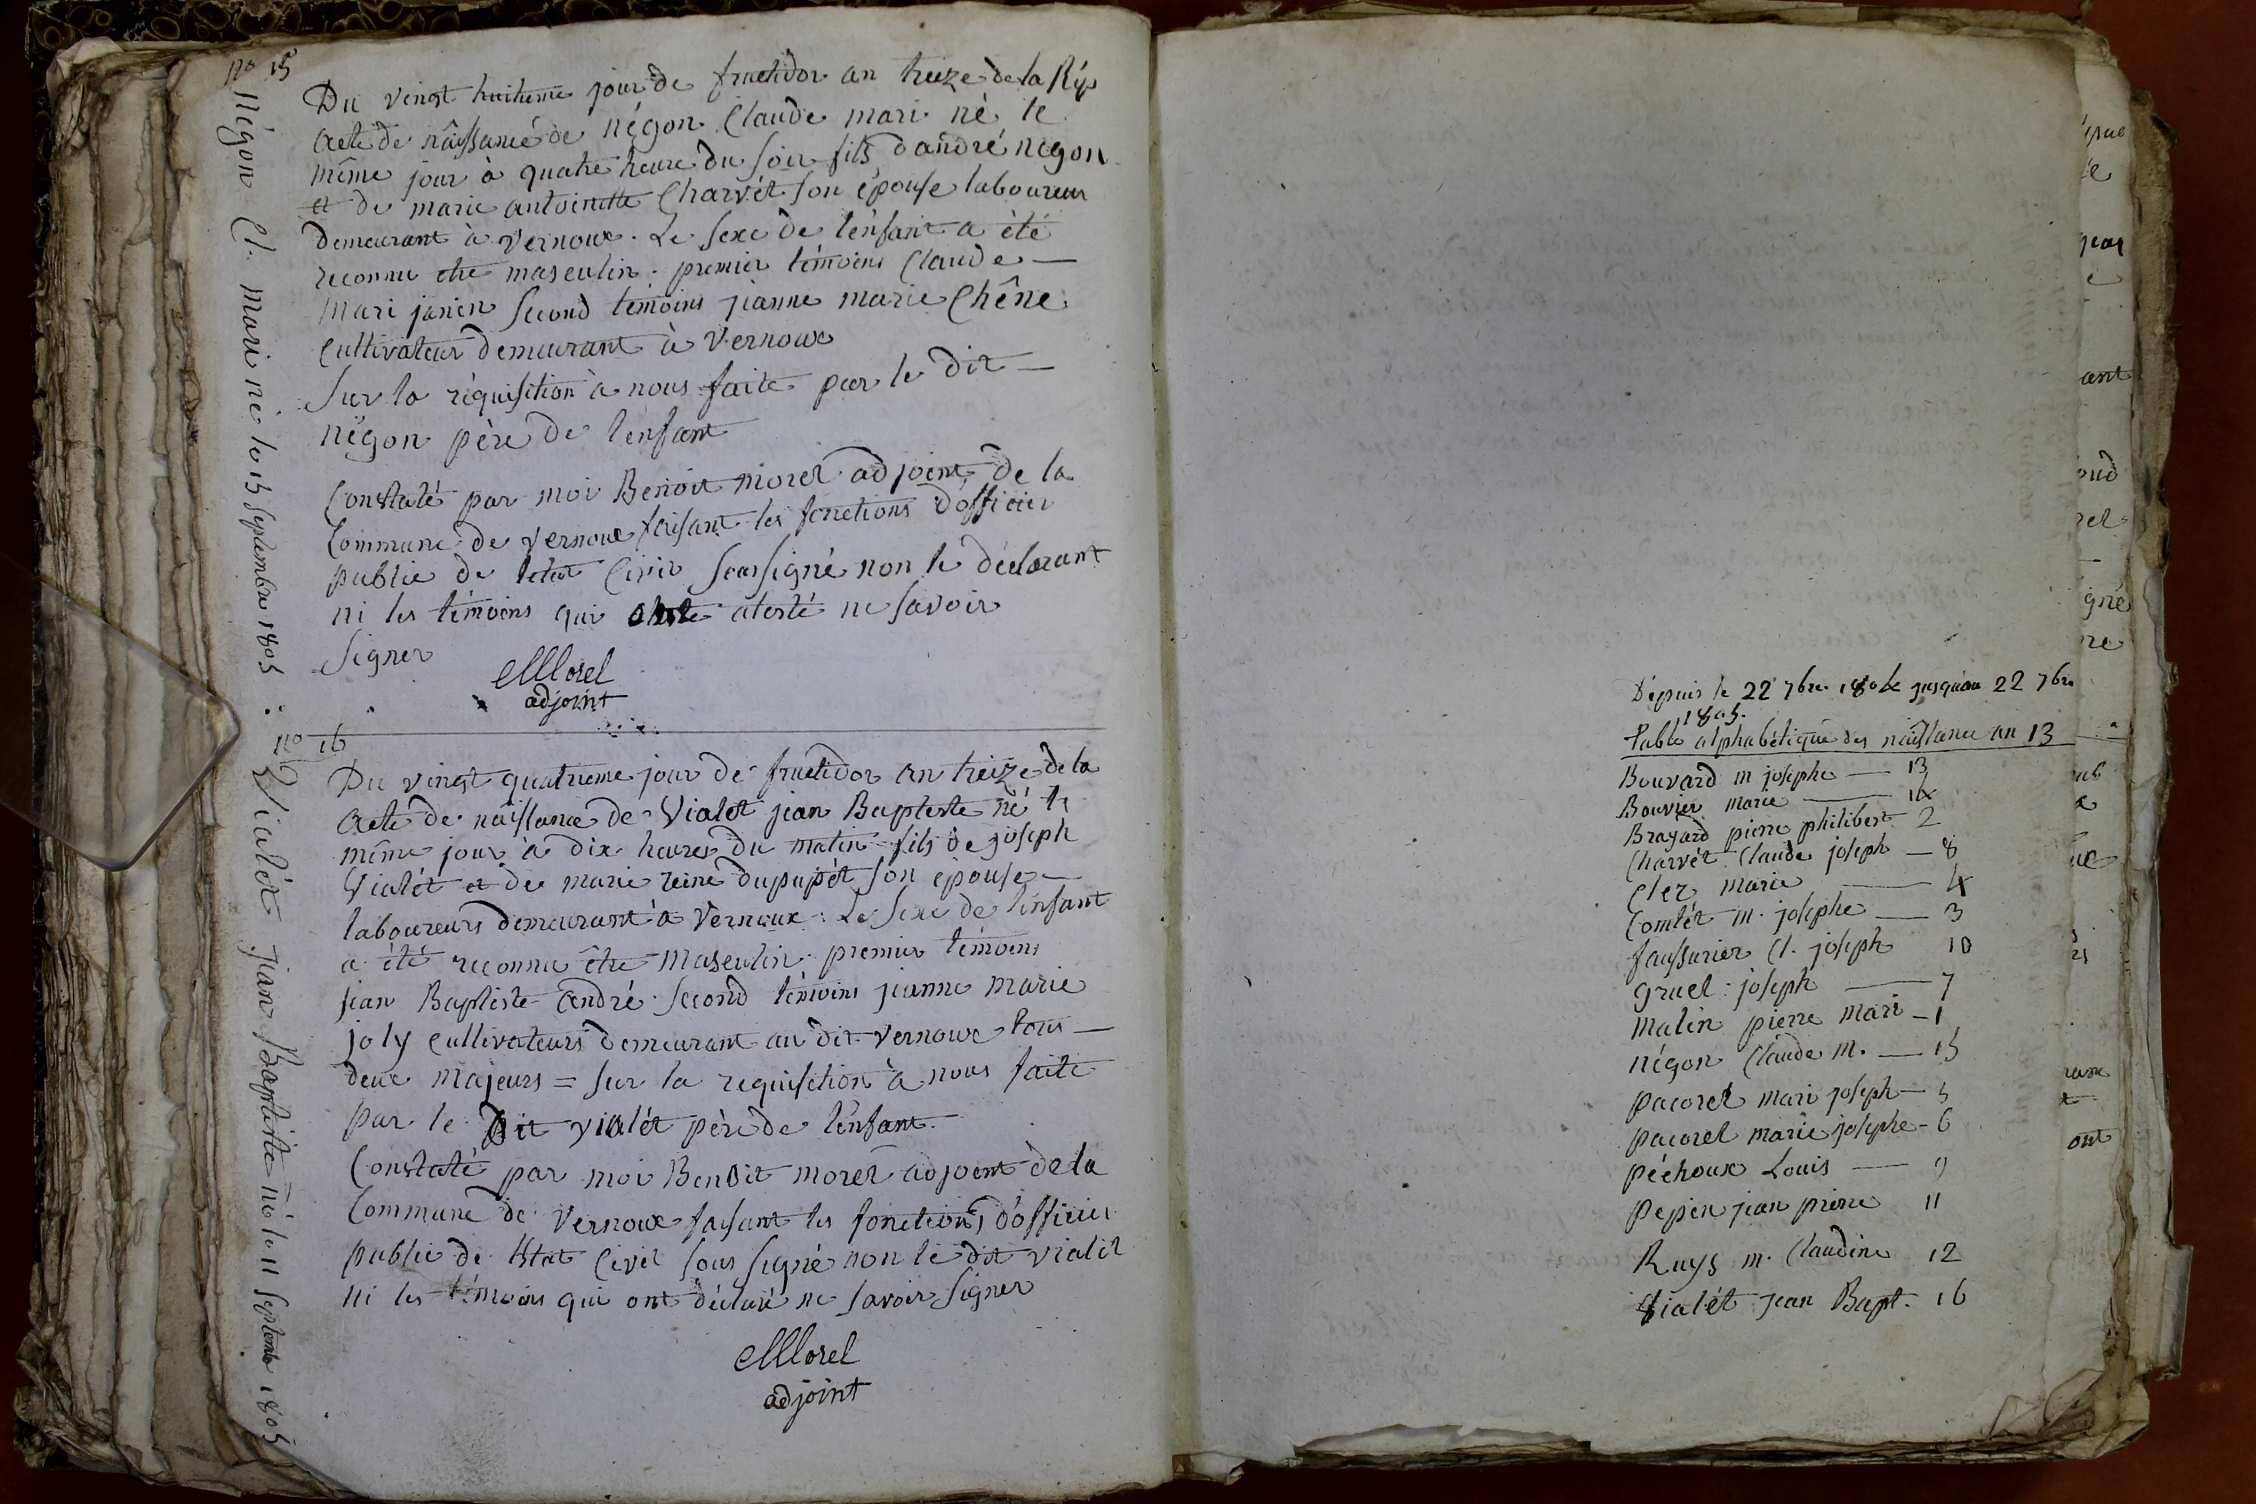 no 15
négon Cl. mari né le 15 septembre 1805
Du vengt huitieme jour de fructidor an treize de la Rép
acte de nâissance de négon Claude mari né le
même jour à quatre heure du soir fils d'andré négon
et de marie antoinette Charvét son épouse laboureur
demeurant à vernoux. Le sexe de l'enfant a été
reconnu etre masculin. premier témoins Claude —
mari janin second témoins jeanne marie Chêne
Cultivateur demeurant à vernoux
Sur la réquisition à nous faite par le dit —
négon père de l'enfant
Constaté par moi Benoit morel adjoint de la
Commune de vernoux faisant les fonctions d'officier
public de letat Civil soussigné non le déclarant
ni les témoins qui atesté ne savoir
signer
Morel
adjoint
no 16
Vialét jean Baptiste né le 11 septembre 1805
Du vingt quatrieme jour de fructidor an treize de la
acte de nâissance de Vialét jean Bapteste né le
même jour à dix heures du matin fils de joseph
Vialét et de marie reine dupupét son épouse —
laboureurs demeurant à Vernoux. Le sexe de l'enfant
a été reconnu être masculin. premier témoins
jean Baptiste andré second témoins jeanne marie
joly cultivateurs demeurant au dit vernoux tous —
deux majeurs = sur la requisition à nous faite
par le Dit vialét père de l'enfant.
Constaté par moi Benoit morel adjoint de la
Commune de vernoux faisant les fonctions d'officier
public de létat Civil sous signé non le dit vialét
ni les témoins qui ont déclaré ne savoir signer
Morel
adjoint
Dépuis le 22 7bre 1804 jusquau 22 7bre
1805.
table alphabétique des nâissance an 13
Bouvard m josephe — 13
Bouvier marie — 14
Brayard pierre philibert 2
Charvét Claude joseph — 8
Clez marie — 4
Comtét m. josephe — 3
faussurier Cl. joseph 10
gruel joseph — 7
malin pierre mari — 1
négon Claude m. — 15
pacorel mari joseph — 5
pacorel marie josephe - 6
péchoux Louis — 9
pepin jean pierre 11
Ruys m. Claudine 12
Vialét jean Bapt. 16